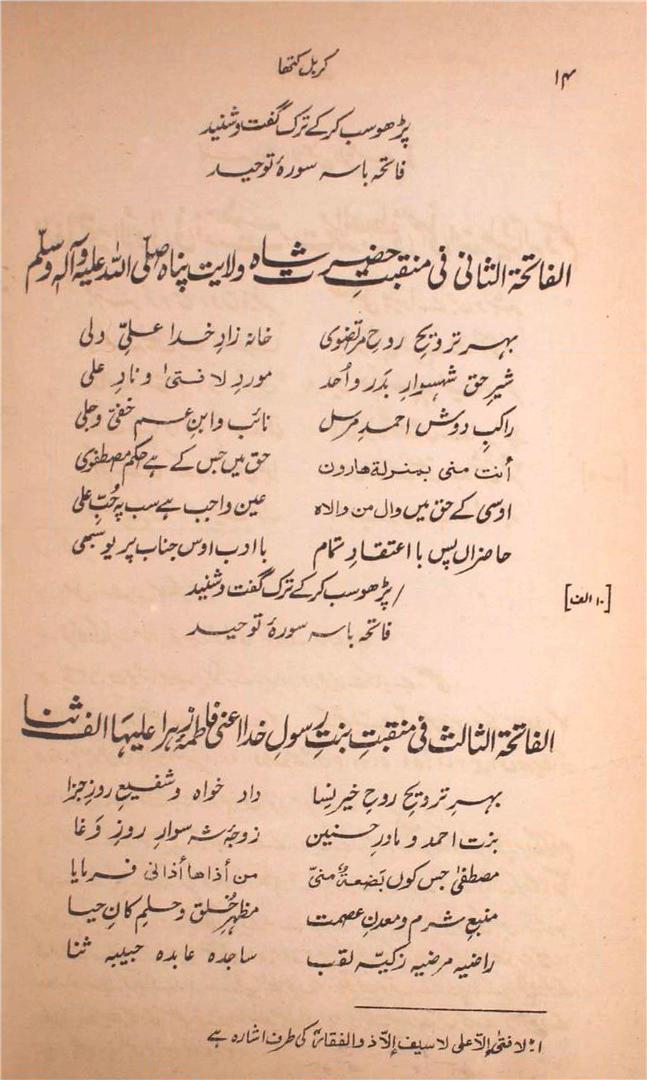 ۱۴
کربل کتھا
پڑھو سب کر کے ترک گفت و شنید
فاتحہ باسہ سورۂ توحید
الفاتحۃ الثانی فی منقبتِ حضرت شاہ ولایت پناہ صلّی اللہ علیہ وآلہٖ وسلّم
بہر ترویحِ روحِ مرتضوی خانہ زادِ خدا علیِّ ولی
شیرِ حق شہسوارِ بدر و اُحد موردِ لا فتیٰ۱ و نادِ علی
راکبِ دوش احمدِ مرسل نائب و ابنِ عم خفیّ و جلی
أنت منی بمنزلة هارون حق میں جس کے ہے حکمِ مصطفوی
اوسی کے حق میں وال من والاہ عین واجب ہے سب پہ حُبِّ علی
حاضراں پس با اعتقادِ تمام با ادب اوس جناب پر یو سبھی
/ پڑھو سب کر کے ترک گفت و شنید [۱۰ الف]
فاتحہ باسہ سورۂ توحید
الفاتحۃ الثالث فی منقبتِ بنتِ رسولِ خدا اعنی فاطمۂ زہرا علیہا الف ثنا
بہرِ ترویحِ روحِ خیرِ نسا داد خواہ و شفیعِ روزِ جزا
بنت احمد و مادرِ حسنین زوجۂ شہ سوارِ روزِ وَغا
مصطفیٰ جس کوں بَضعۃٌ منّی من أذاها أذانی فرمایا
منبعِ شرم و معدنِ عصمت مظہرِ خُلق و حلم کانِ حیا
راضیہ مرضیہ زکیّہ لقب ساجدہ عابدہ حبیبہ ثنا
۱؎ لا فتیٰ إلاّ علی لا سیف إلاّ ذوالفقار کی طرف اشارہ ہے